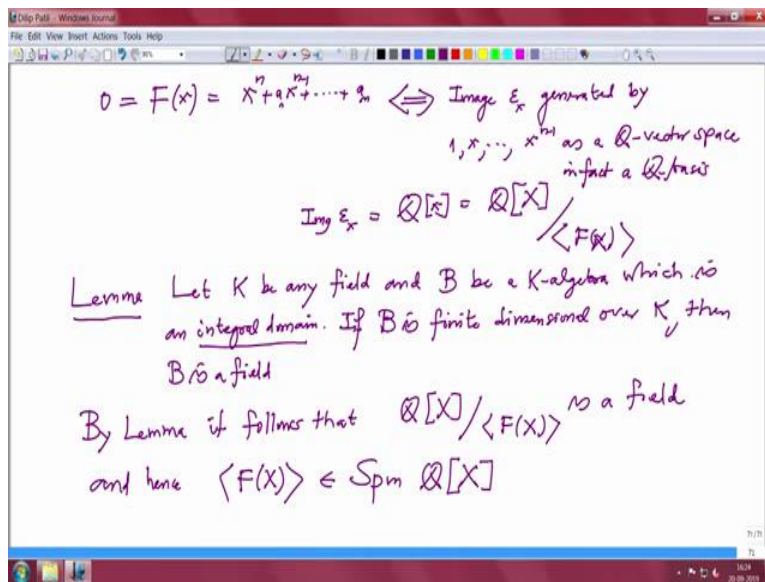 Dilip Patil - Windows Journal
File Edit View Insert Actions Tools Help
0 = F(x) = xⁿ + a₁xⁿ⁻¹ + ..... + aₙ ⟺ Image εₓ generated by
1, x, .., xⁿ⁻¹ as a ℚ-vector space
in fact a ℚ-basis
Img εₓ = ℚ[x] = ℚ[X] / ⟨F(X)⟩
Lemma Let K be any field and B be a K-algebra which is
an integral domain. If B is finite dimensional over K, then
B is a field
By Lemma it follows that ℚ[X]/⟨F(X)⟩ is a field
and hence ⟨F(X)⟩ ∈ Spm ℚ[X]
71/71
71
16:24
20-09-2019